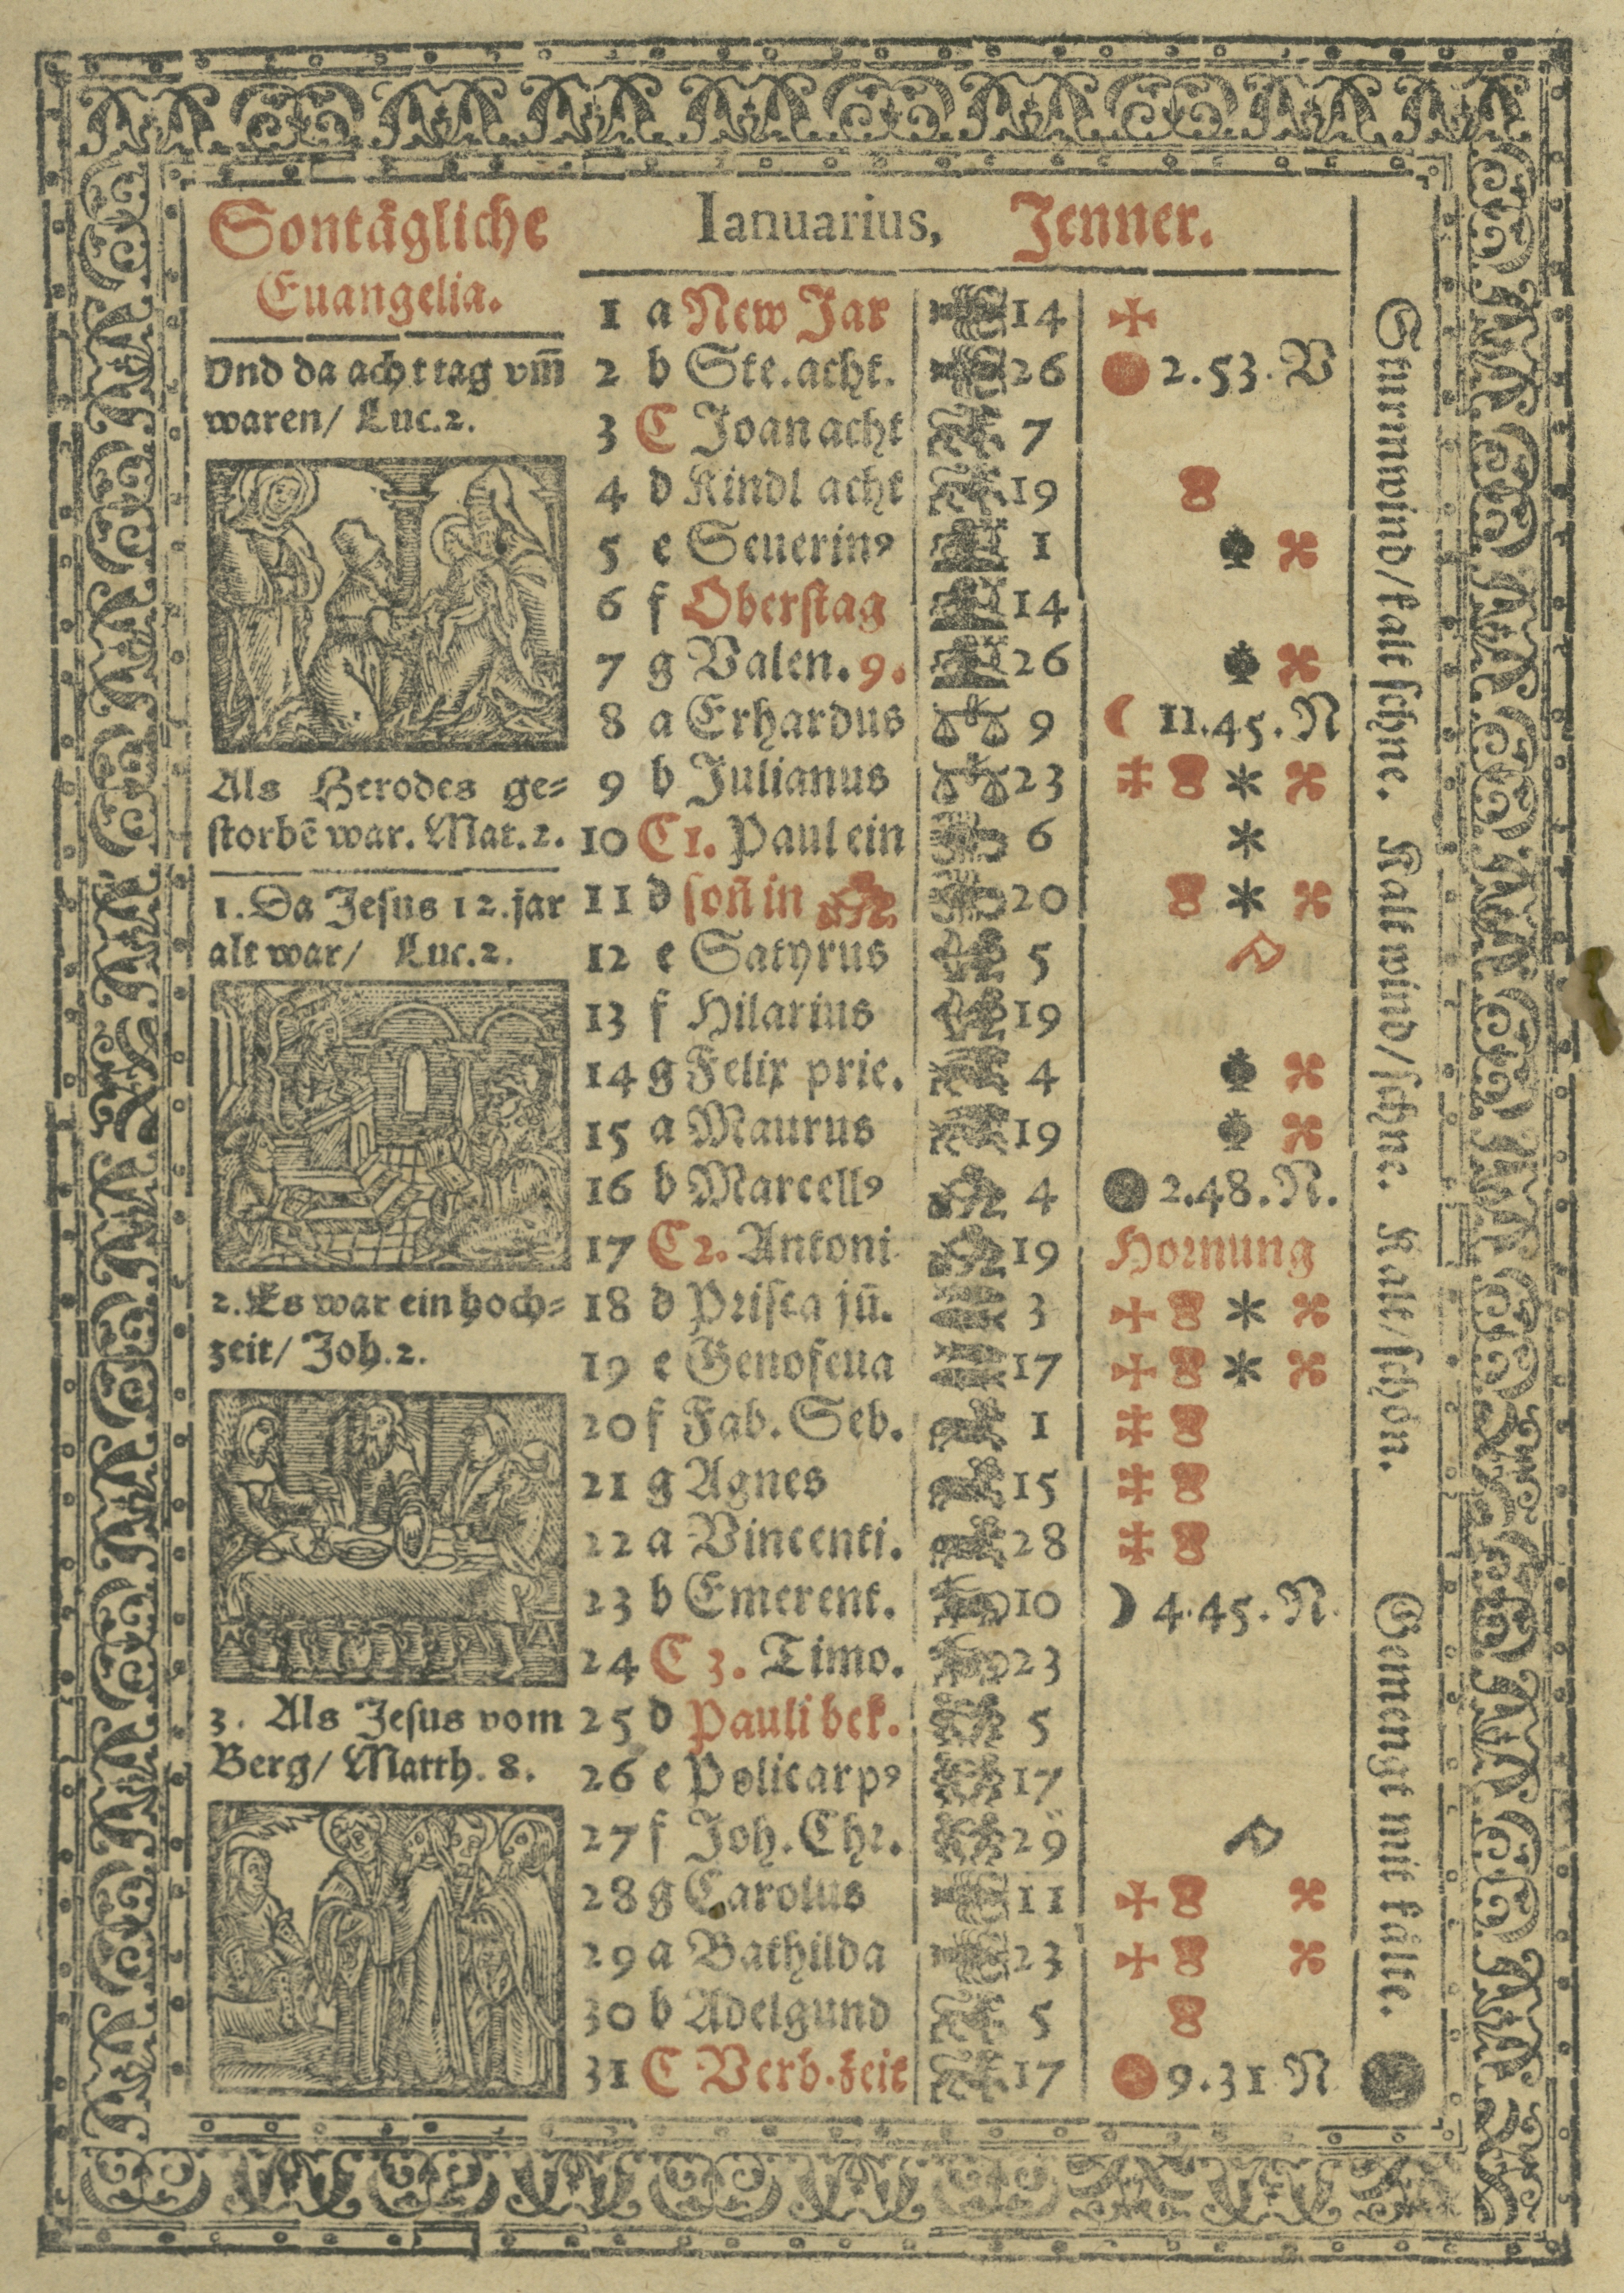 Sontägliche
Euangelia.
vnd da acht tag vm̄
waren/ Luc.2.
Als Herodes ge⸗
ſtorbē war. Mat.2.
1. Da Jeſus 12. jar
alt war/ Luc.2.
2. Es war ein hoch⸗
zeit/ Joh.2.
3. Als Jeſus vom
Berg/ Matth. 8.
Ianuarius, Jenner.
1 a New Jar 14
2 b Ste. acht. 26 2.53. V
3 C Joan acht 7
4 d Kindl acht 19
5 e Seuerinꝰ 1
6 f Oberſtag 14
7 g Valen. 9. 26
8 a Erhardus 9 11.45. N
9 b Julianus 23
10 C 1. Paul ein 6
11 d ſoñ in 20
12 e Satyrus 5
13 f Hilarius 19
14 g Felix prie. 4
15 a Maurus 19
16 b Marcellꝰ 4 2.48. N.
17 C 2. Antoni 19 Hornung
18 d Priſca jū. 3
19 e Genofeua 17
20 f Fab. Seb. 1
21 g Agnes 15
22 a Vincenti. 28
23 b Emerent. 10 4.45. N.
24 C 3. Timo. 23
25 d Pauli bek. 5
26 e Policarpꝰ 17
27 f Joh. Chr. 29
28 g Carolus 11
29 a Bathilda 23
30 b Adelgund 5
31 C Verb. zeit 17 9.31 N
Sturmwind/ kalt ſchne. Kalt wind/ ſchne. Kalt/ ſchön. Gemengt mit kälte.